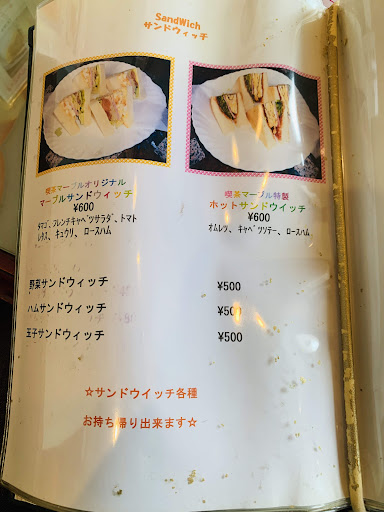 SandWich
サンドウィッチ
喫茶マーブルオリジナル
マーブルサンドウイッチ
¥600
タマゴ、フレンチキャベツサラダ、トマト
レタス、キュウリ、ロースハム
喫茶マーブル特製
ホットサンドウイッチ
¥600
オムレツ、キャベツソテー、ロースハム
野菜サンドウィッチ ¥500
ハムサンドウィッチ ¥500
玉子サンドウィッチ ¥500
☆サンドウイッチ各種
お持ち帰り出来ます☆